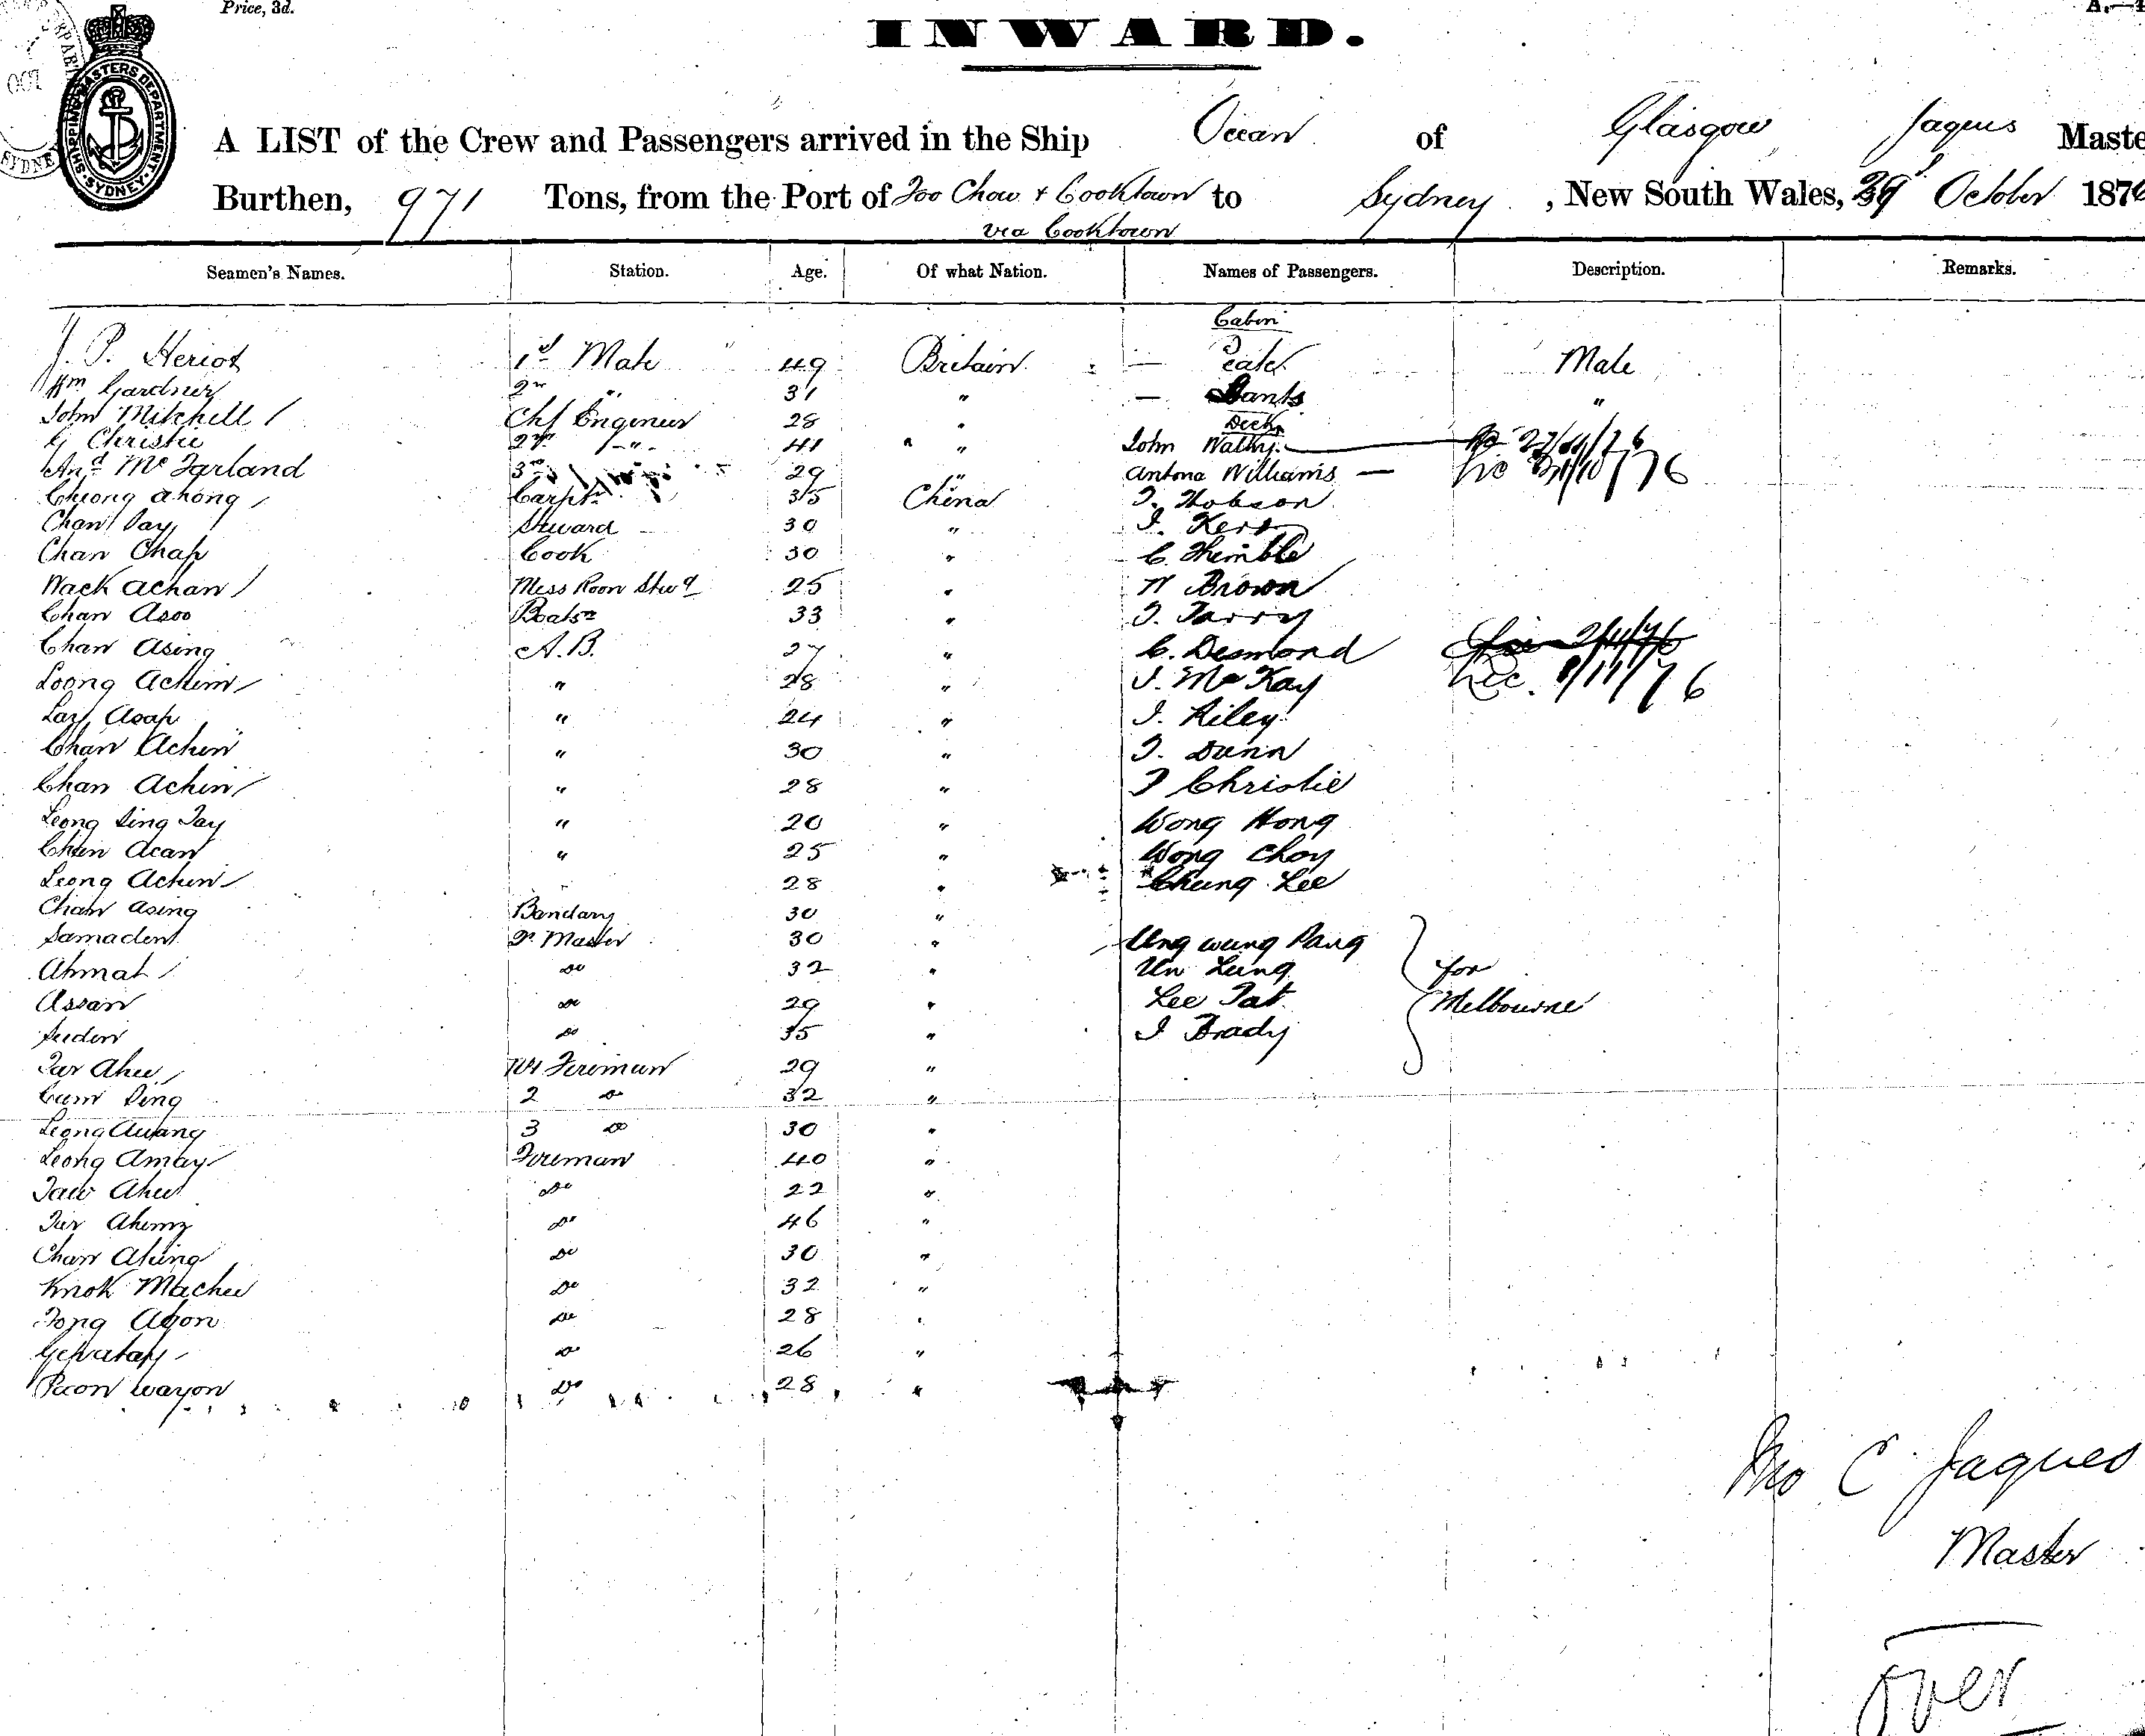 Price, 3d.
A.—
INWARD.
OCT
SYDNEY
SHIPPING MASTERS DEPARTMENT
SYDNEY
A LIST of the Crew and Passengers arrived in the Ship Ocean of Glasgow Jaques Maste
Burthen, 971 Tons, from the Port of Foo Chow & Cooktown to Sydney, New South Wales, October 187
via Cooktown
Seamen's Names. Station. Age. Of what Nation. Names of Passengers. Description. Remarks.
Cabin
J. P. Heriot 1st Mate 49 Britain — Male
Wm Gardner 2n " 31 " — "
John Mitchell Chf Engineer 28 " Deck
G Christie 2n " 41 " John
And McFarland 3rd 29 " Antona Williams —
Cheong Ahong Carptr 35 China T. Hobson
Chan Steward 30 " J. Kerr
Chan Chap Cook 30 " C. Themble
Wack Achan Mess Room Stwd 25 " W Brown
Chan Asoo Boatsn 33 " T. Tarry
Chan Asing A.B. 27 " C. Desmond
Loong Achim " 28 " J. McKay 8/11/76
Lay Asap " 24 " J. Riley
Chan Achin " 30 " T. Dunn
Chan Achin " 28 " T Christie
Leong Sing Tay " 20 " Wong Hong
Chan Acan " 25 " Wong Choy
Leong Achin 28 " Chung Lee
Chan Asing Bandary 30 "
Samaden Qr Master 30 " Ung wung Pang
Ahmat Do 32 " Un Lung for
Assan Do 29 " Lee Tat Melbourne
Do 35 " J Brady
Ahee No1 Fireman 29 "
Sing 2 Do 32 "
Leong 3 Do 30 "
Leong Amay Fireman 40 "
Do 22 "
Do 46 "
Chan Do 30 "
Knok Machee Do 32 "
Do 28 "
Do 26 "
Wayon Do 28 "
C Jaques
Master
Over